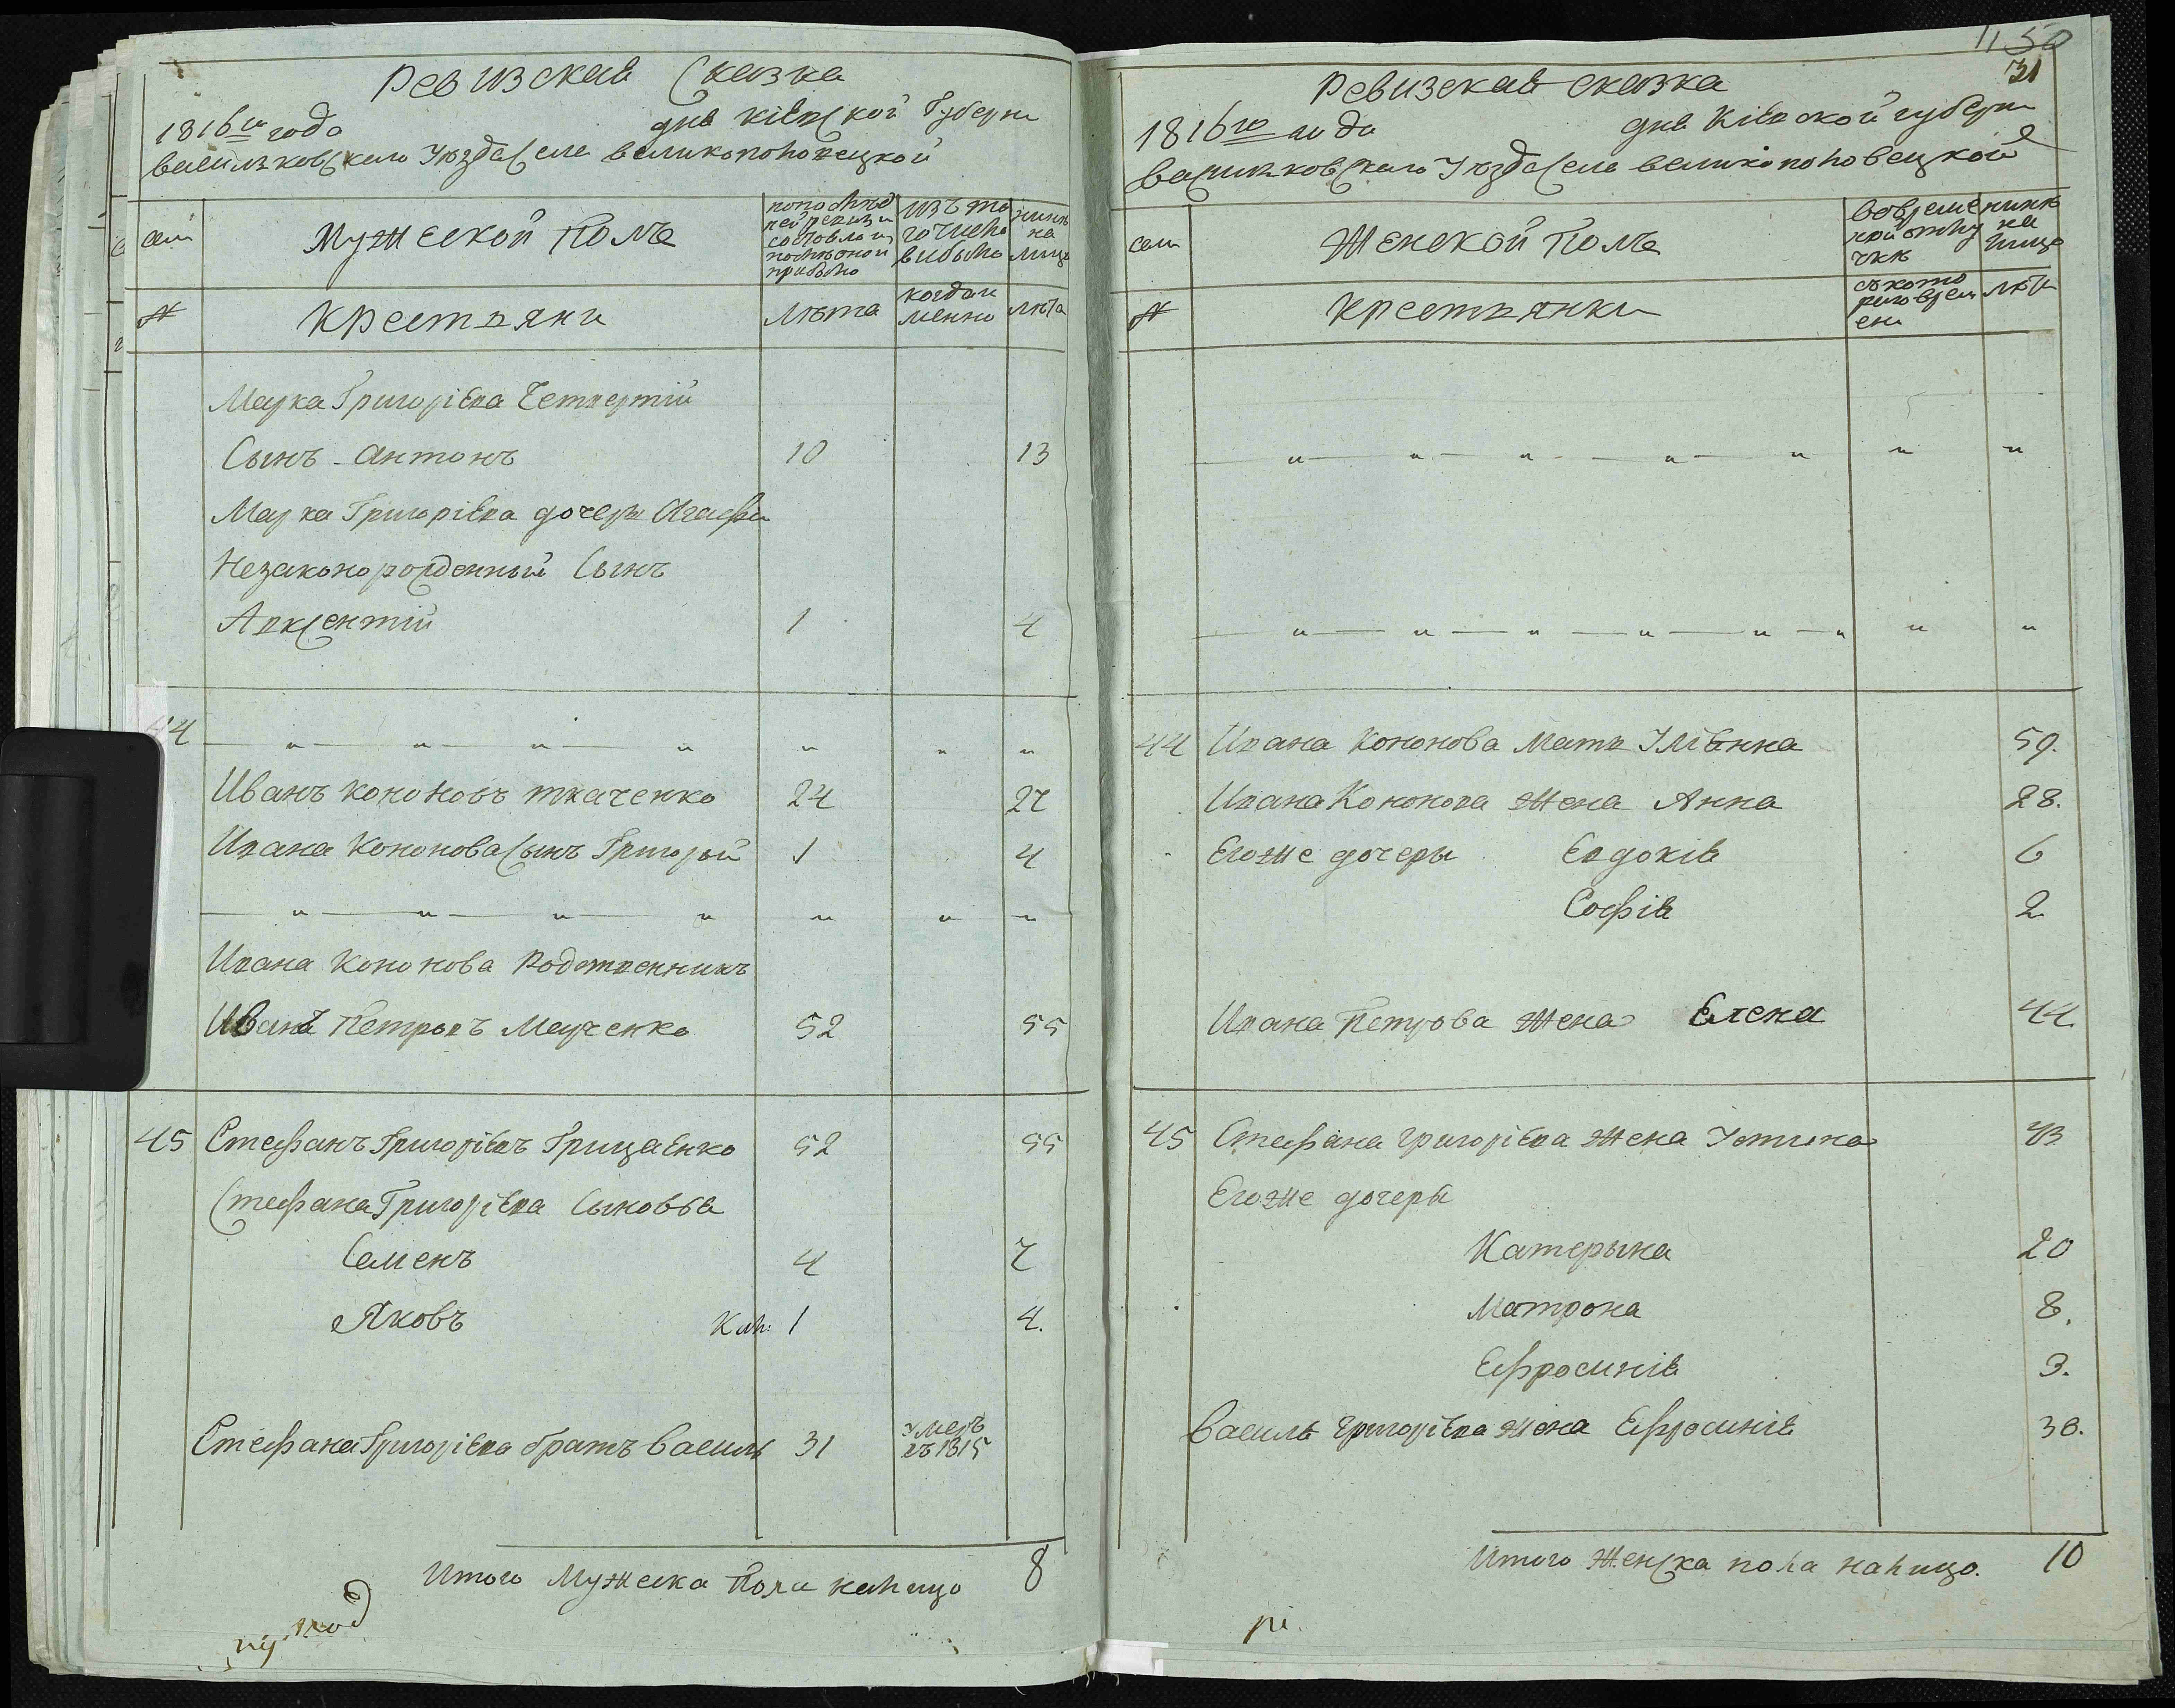 Ревизская Сказка
1816го года дня Кіевской Губерни
васильковскаго Уезда села великополовецкой
семи
Мужеской Полъ
по последней ревизіи состояло и после оной прибыло
изъ того числа выбыло
ныне на лицо
№
Крестьяни
Лѣта
когда именно
лѣта
Марка Григоріева Четвертій
Сынъ - Антонъ 10 13
Марка Григоріева дочеры Агафи
Незаконорожденный Сынъ
Авксентій 1 4
44
Иванъ Кононовъ ткаченко 24 27
Ивана Кононова Сынъ Григорый 1 4
Ивана Кононова Родственникъ
Иванъ Петровъ Марченко 52 55
45 Стефанъ Григоріевъ Грицаенко 52 55
Стефана Григоріева Сыновья
Семенъ 4 7
Яковъ 1 4.
Стефана Григоріева братъ Василь 31 умеръ въ 1815
Итого Мужеска Пола налицо 8
1150
31
Ревизская сказка
1816го года дня Кіевской губерни
васильковскаго Уезда села великополовецкой
семи
Женской Полъ
во временной отлучкѣ
ныне на лицо
№
Крестьянки
съ которого времени
лѣта
44 Ивана Кононова Мать Уліянна 59.
Ивана Кононова Жена Анна 28.
Егоже дочеры Евдокія 6
Софія 2
Ивана Петрова Жена Елена 44.
45 Стефана Григоріева Жена Устина 43
Егоже дочеры
Катерына 20
Матрона 8.
Ефросинія 3.
Василя Григоріева Жена Ефросинія 30.
Итого Женска пола налицо. 10